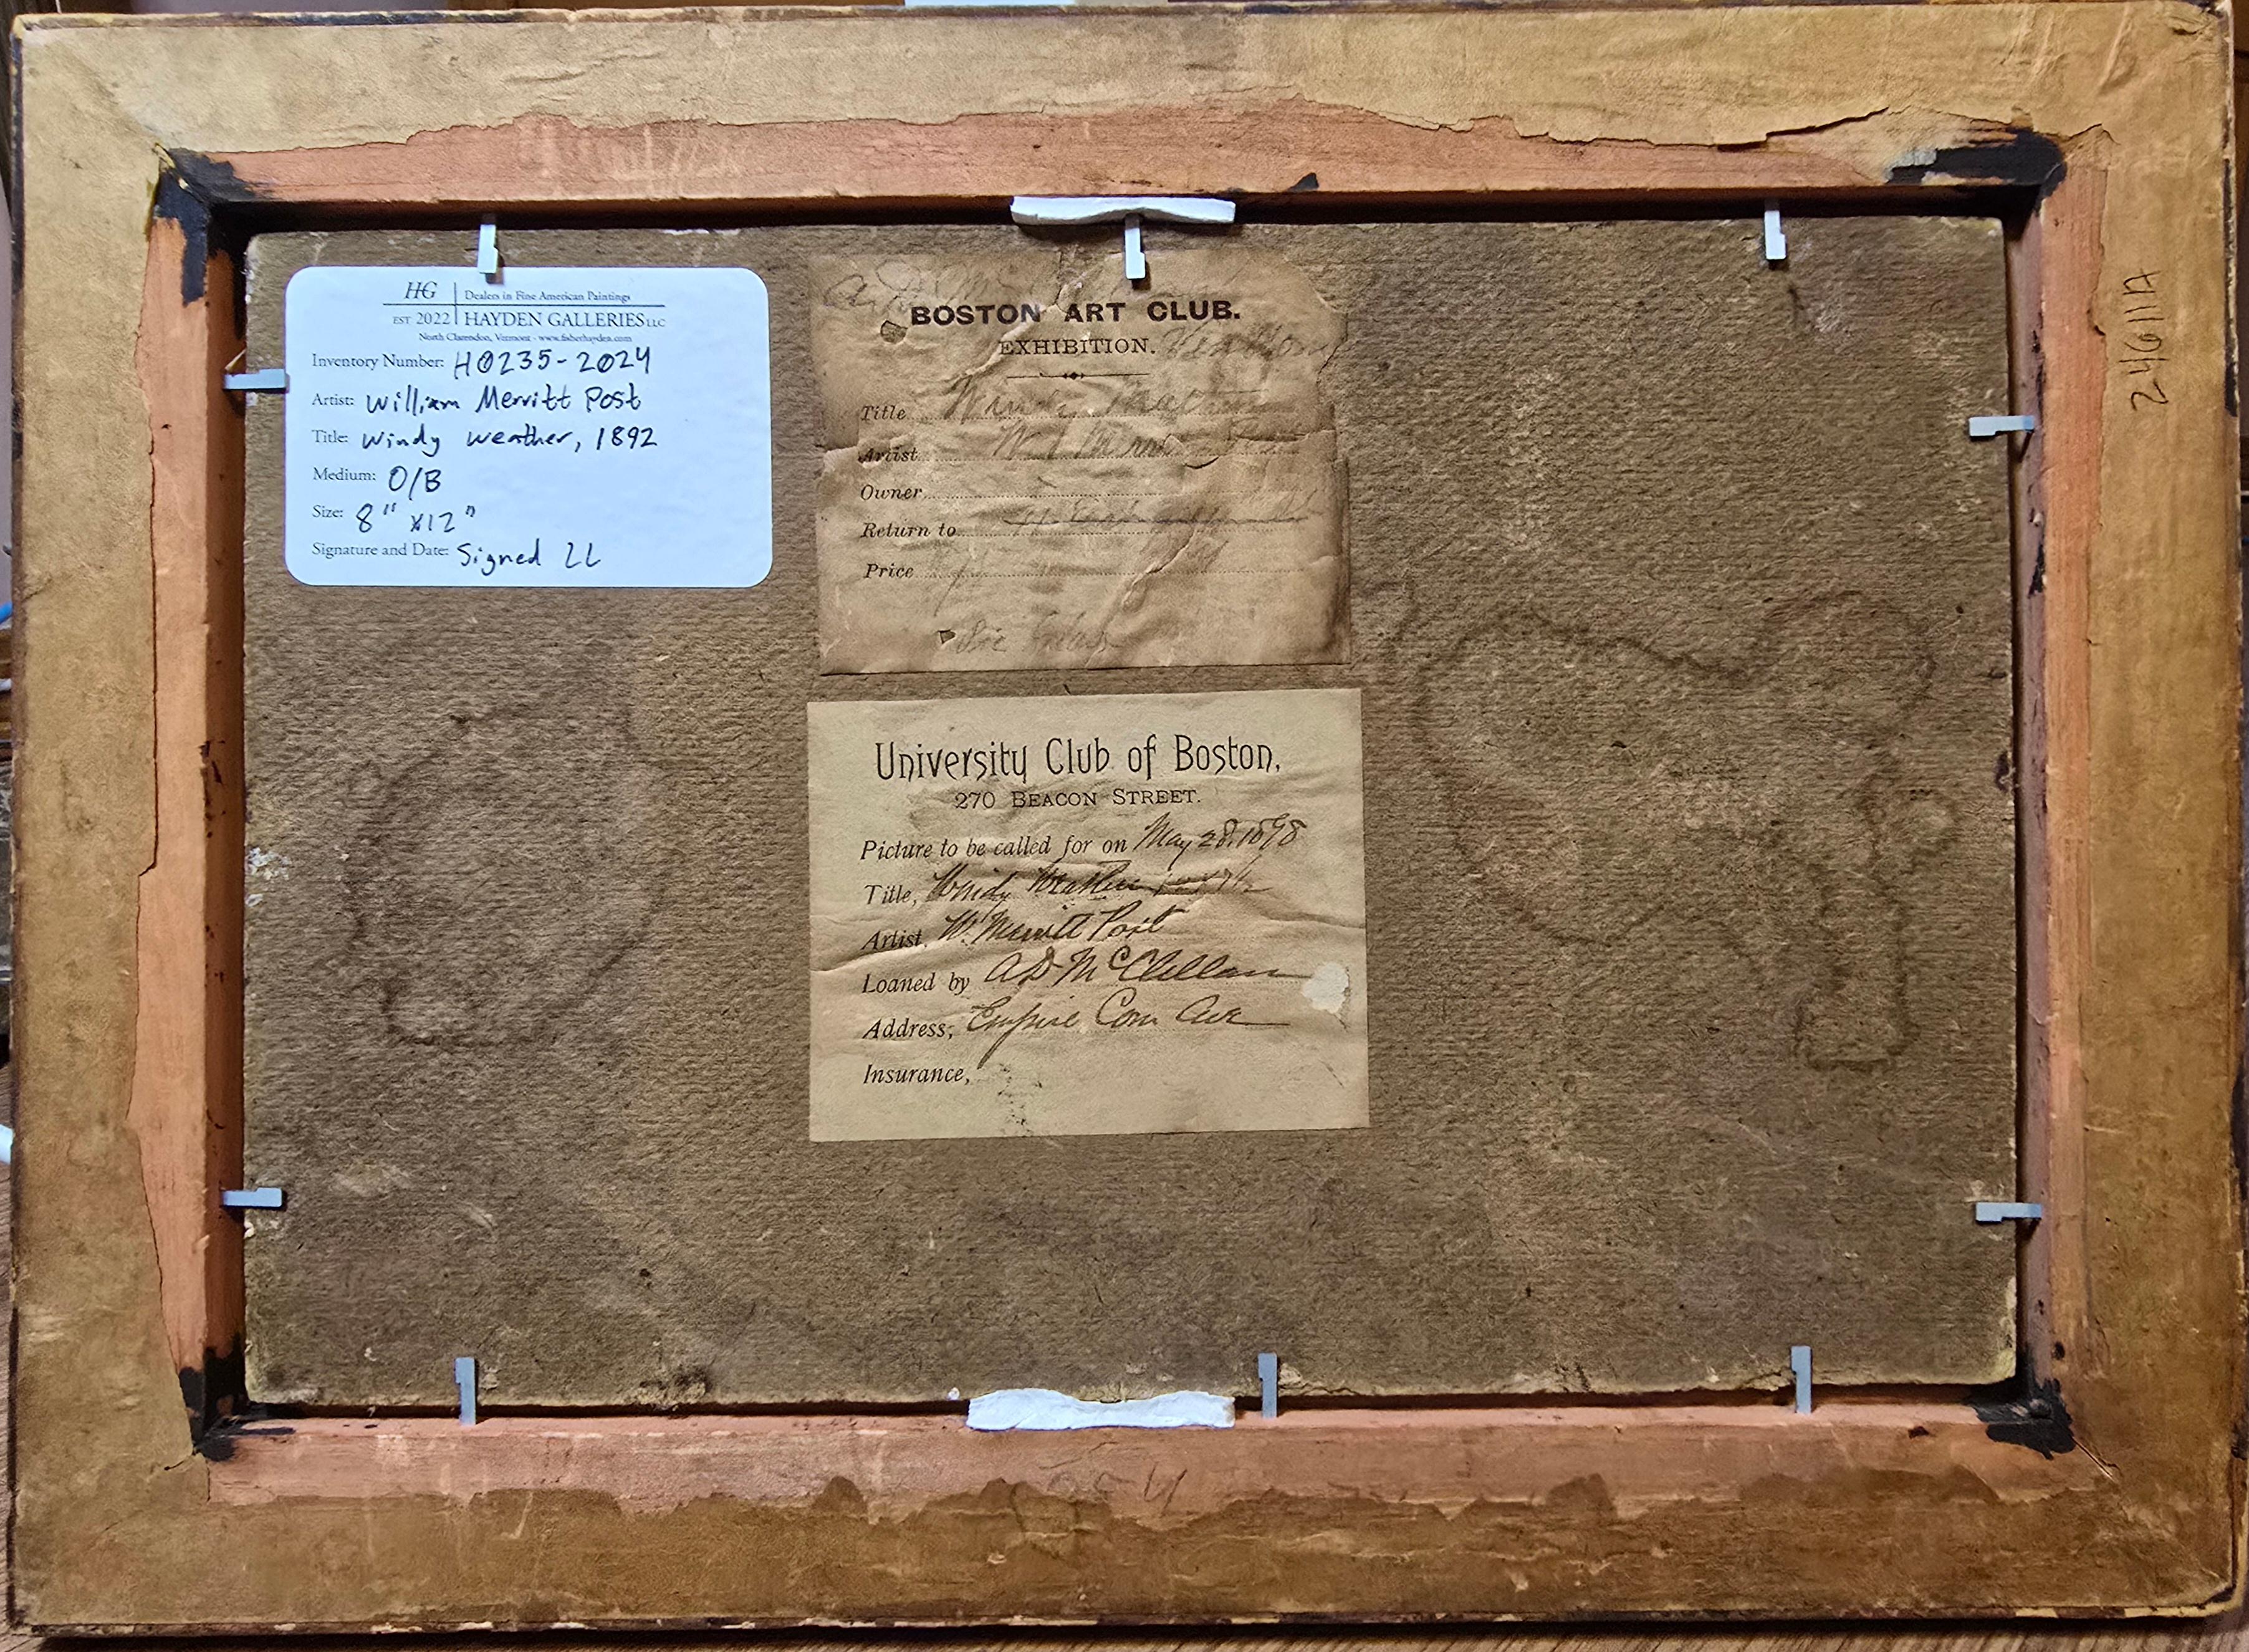 HG Dealers in Fine American Paintings
EST 2022 HAYDEN GALLERIES LLC
North Clarendon, Vermont - www.fisherhayden.com
Inventory Number: H0235-2024
Artist: William Merritt Post
Title: Windy weather, 1892
Medium: O/B
Size: 8" x12"
Signature and Date: Signed LL
BOSTON ART CLUB.
EXHIBITION.
Title
Artist
Owner
Return to
Price
University Club of Boston,
270 BEACON STREET.
Picture to be called for on May 28, 1898
Title, Windy Weather
Artist, W. Merritt Post
Loaned by A D McClellan
Address, Empire Com Ave
Insurance,
24611A